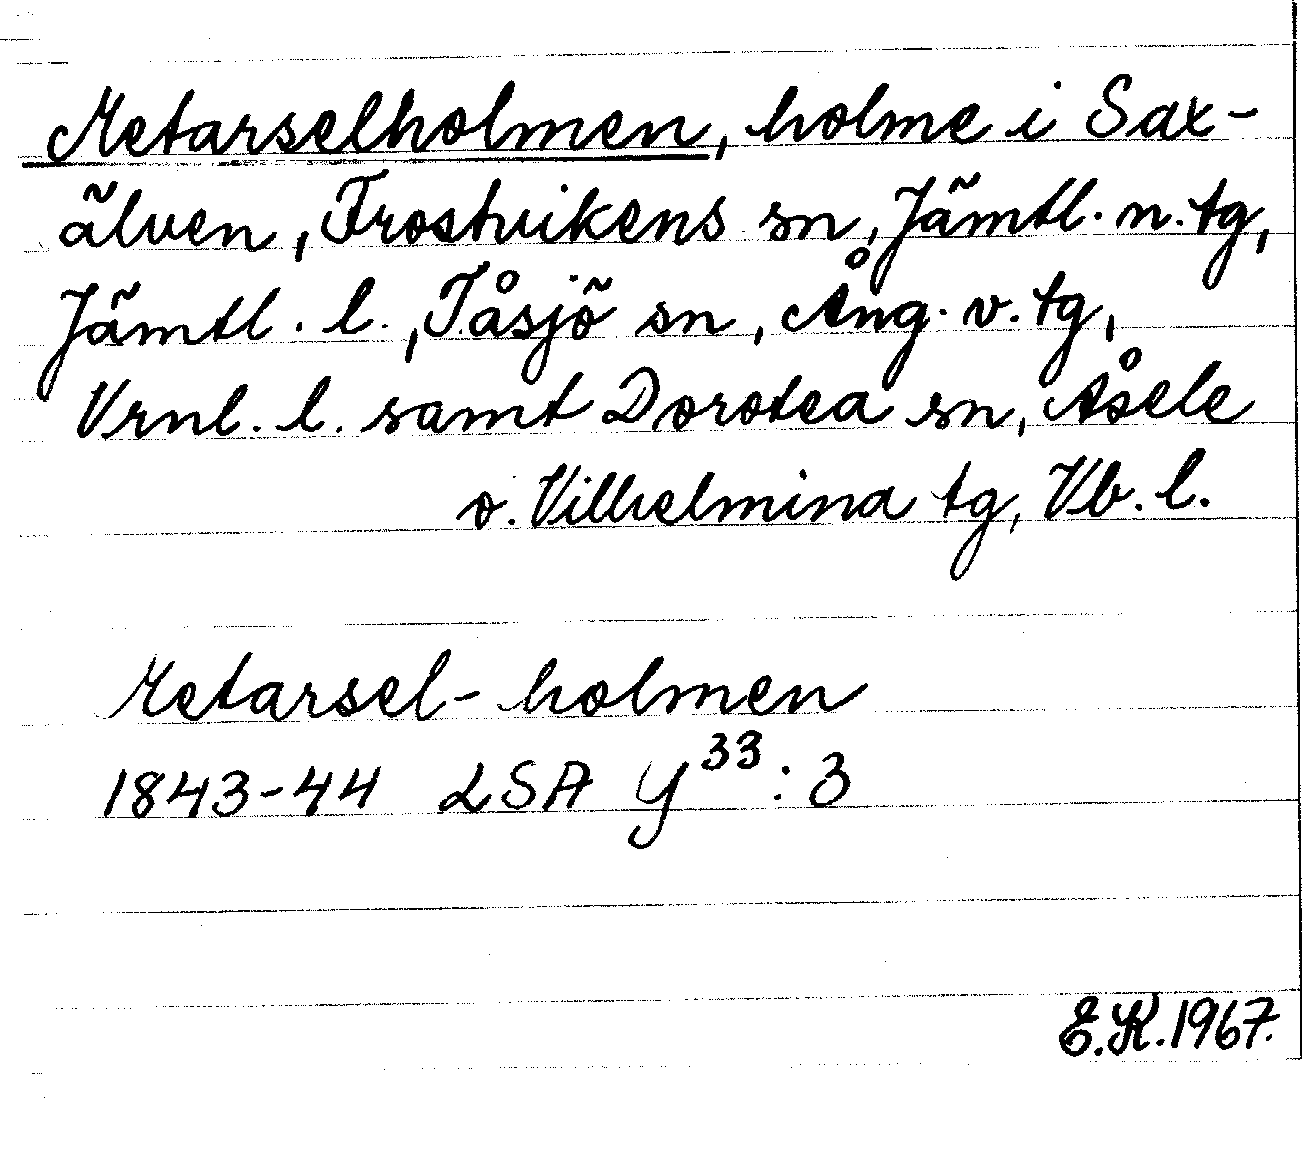 Metarselholmen, holme i Sax-
älven, Frostvikens sn, Jämtl. n. tg,
Jämtl. l., Tåsjö sn, Ång. v. tg,
Vrnl. l. samt Dorotea sn, Åsele
o. Vilhelmina tg, Vb. l.
Metarsel-holmen
1843-44 LSA Y³³:3
E.K. 1967.